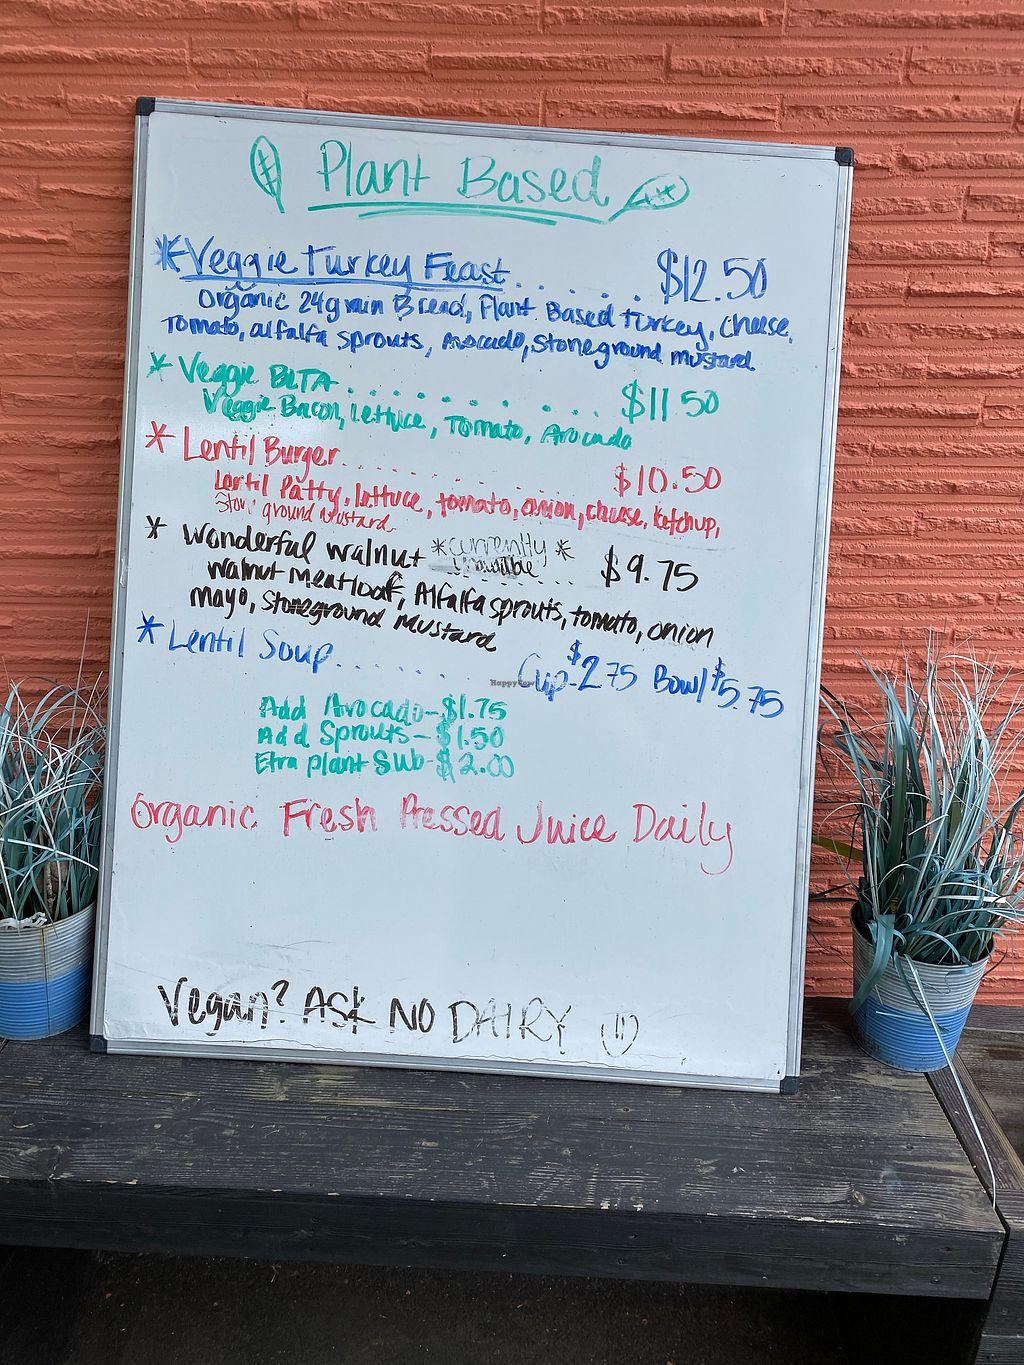 Plant Based
*Veggie Turkey Feast...... $12.50
Organic 24grain Bread, Plant Based turkey, cheese,
Tomato, alfalfa sprouts, Avocado, stoneground mustard
* Veggie BLTA............ $11.50
Veggie Bacon, Lettuce, Tomato, Avocado
* Lentil Burger............ $10.50
Lentil Patty, lettuce, tomato, onion, cheese, ketchup,
Stone ground mustard
* Wonderful walnut *currently * $9.75
unavailable
walnut meatloaf, Alfalfa sprouts, tomato, onion
mayo, stoneground mustard
* Lentil Soup...... Cup-$2.75 Bowl $5.75
HappyCow
Add Avocado-$1.75
Add Sprouts-$1.50
Etra plant SUb-$2.00
Organic Fresh Pressed Juice Daily
Vegan? ASk NO DAIRY